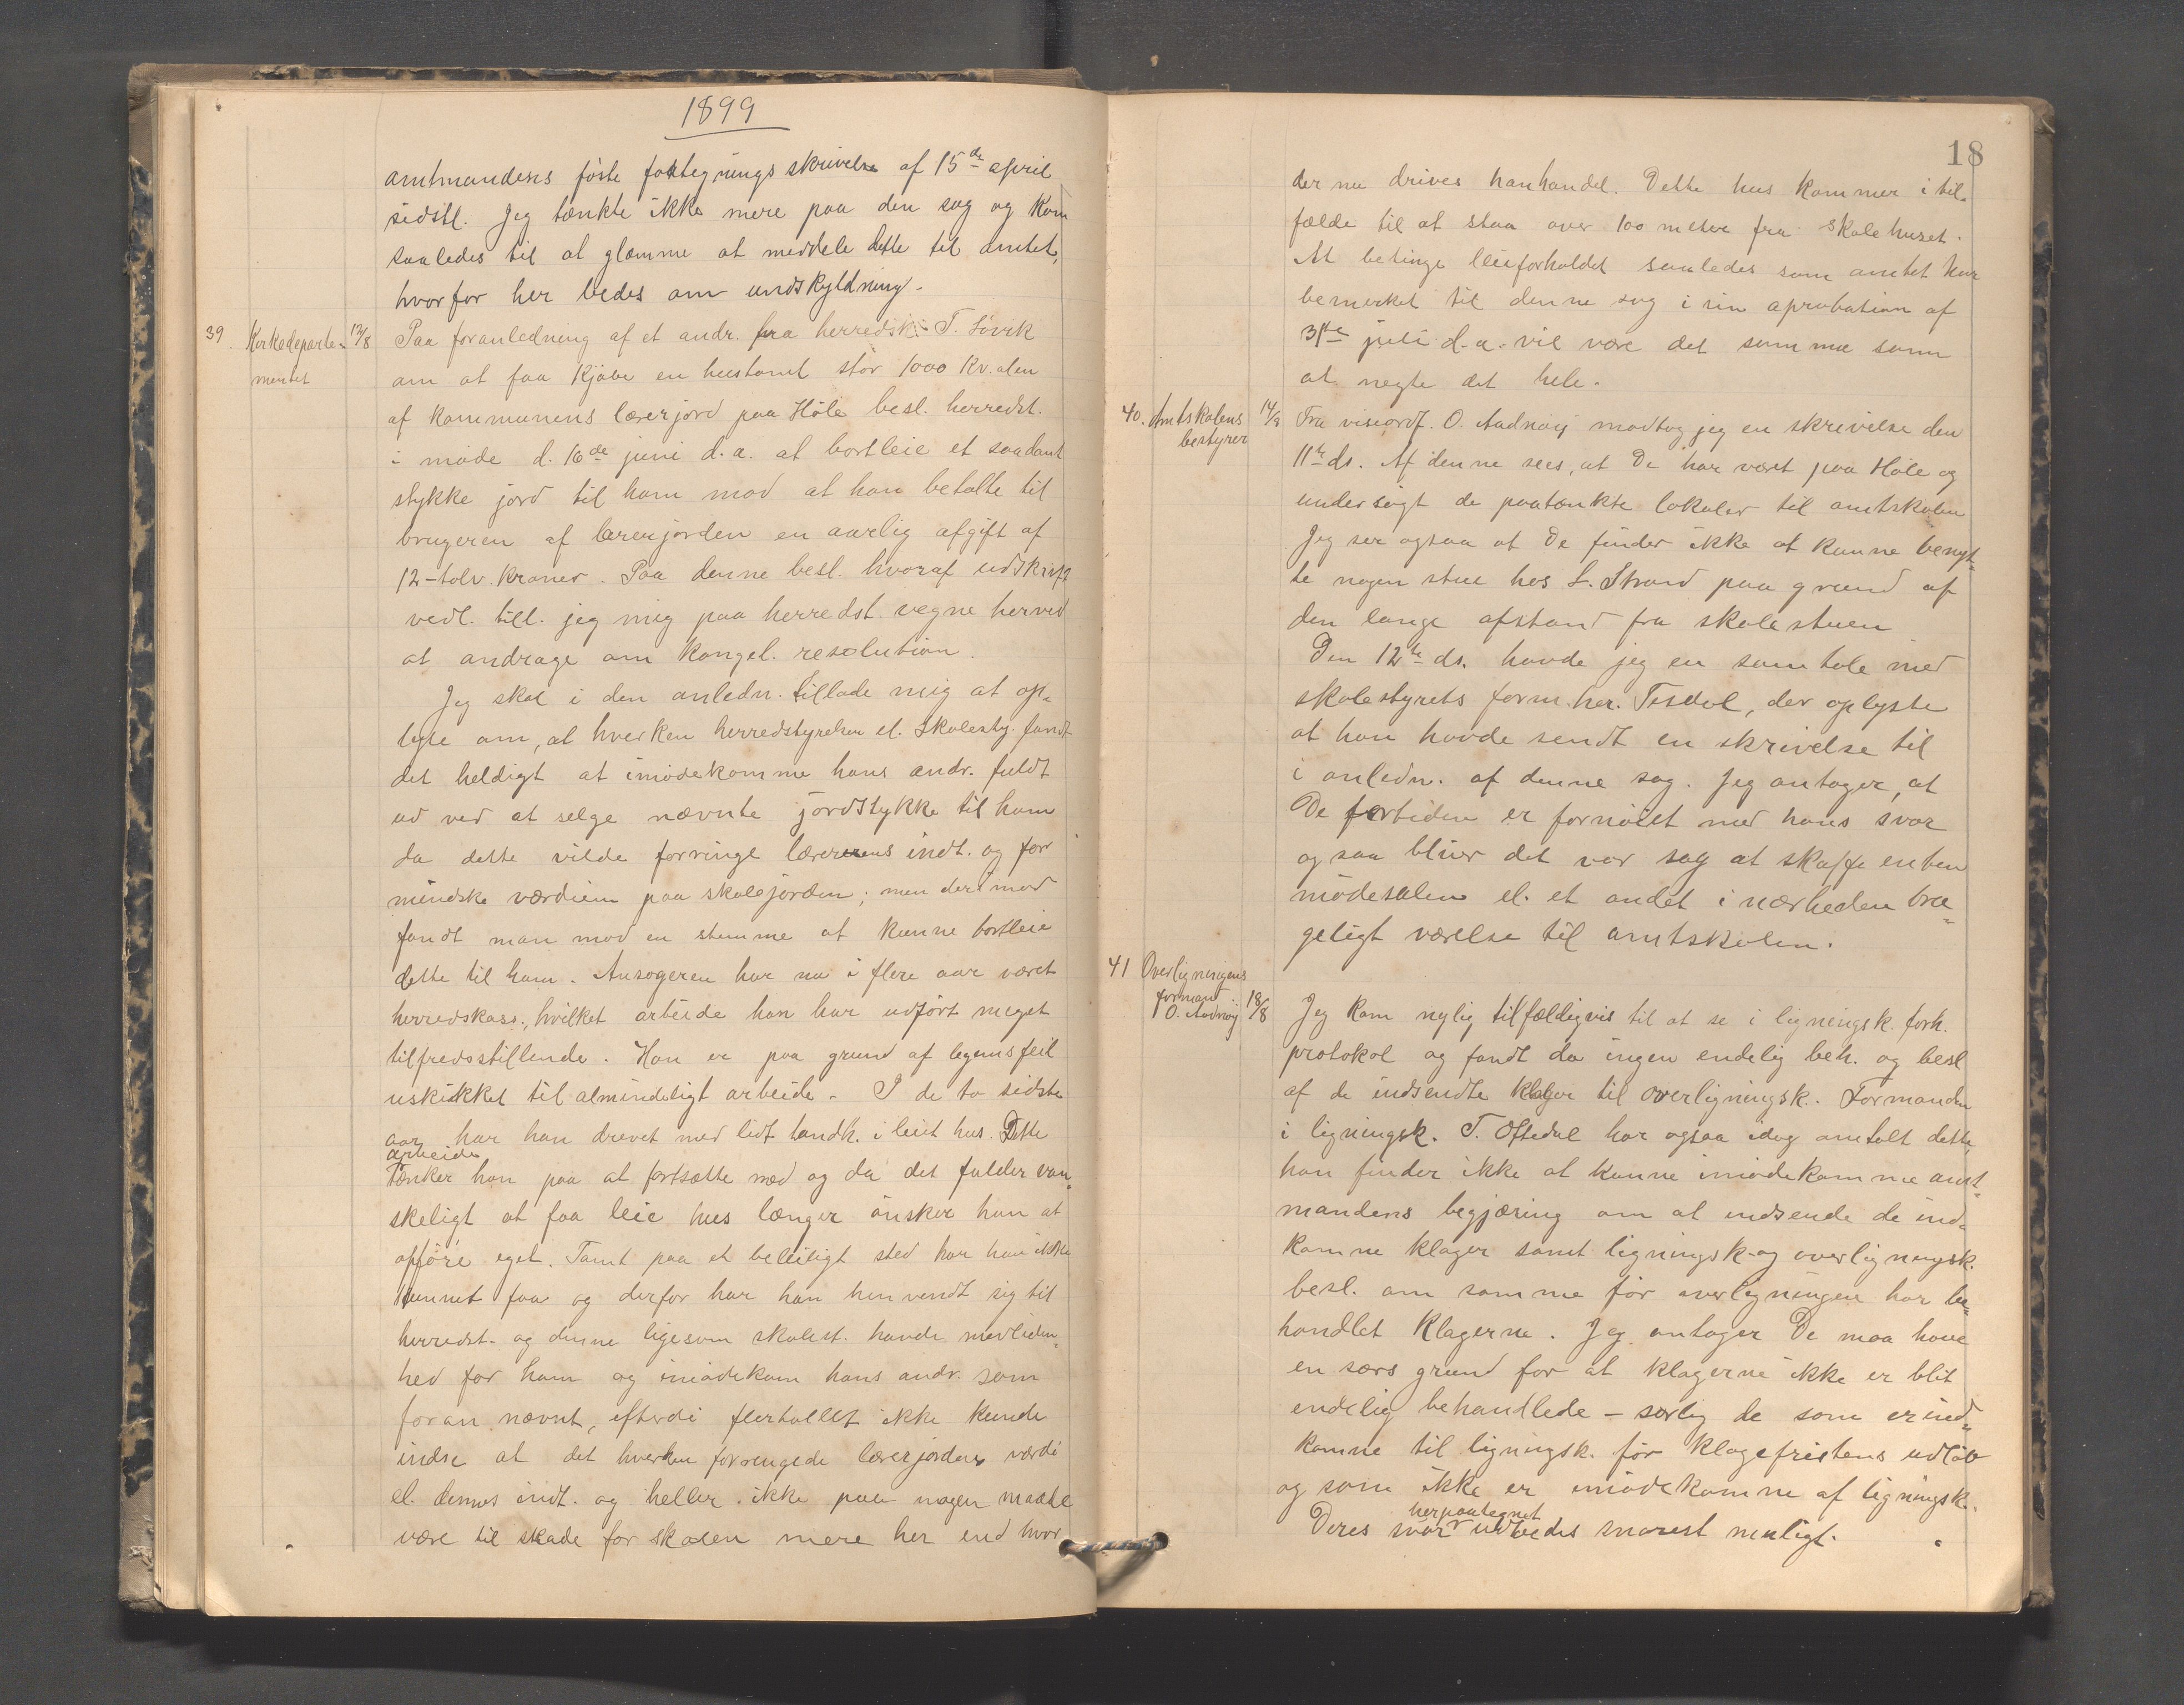 1899
amtmandens föste paategnings skrivelse af 15de april
sidstl. Jeg tænkte ikke mere paa den sag og kom
saaledes til at glæmme at meddele dette til amtet,
hvorfor her bedes om undskyldning.
39. Kirkedeparte-
mentet
12/8
Paa foranledning af et andr. fra herredsk. T. Lövik
om at faa kjöbe en hustomt stör 1000 kv. alen
af kommunens lærerjord paa Höle besl. herredst.
i möde d. 16de juni d.a. at bortleie et saadant
stykke jord til ham mod at han betalte til
brugeren af lærerjorden en aarlig afgift af
12-tolv. kroner. Paa denne besl. hvoraf udskrift
vedl. till. jeg mig paa herredst. vegne herved
at andrage om kongel. resolution.
Jeg skal i den anledn. tillade mig at op-
lyse om, at hverken herredstyrelsen el. skolesty. fandt
det heldigt at imödekomme hans andr. fuldt
ud ved at selge nævnte jordstykke til ham
da dette vilde forringe lærerens indt. og for
mindske værdien paa skolejorden; men derimod
fandt man mod en stemme at kunne bortleie
dette til ham. Ansögeren har nu i flere aar været
herredskass., hvilket arbeide han har udfört meget
tilfredsstillende. Han er paa grund af legemsfeil
uskikket til almindeligt arbeide. I de to sidste
aar har han drevet med lidt landh. i leiet hus. Dette
arbeide
tænker han paa at fortsætte med og da det falder van-
skeligt at faa leie hus længer önsker han at
opföre eget. Tomt paa et beleiligt sted har han ikke
kunnet faa og derfor har han henvendt sig til
herredst. og denne ligesom skolest. havde medliden-
hed for ham og imödekom hans andr. som
foran nævnt, efterdi flertallet ikke kunde
indse at det hverken forringede lærerjordens værdi
el. dennes indt. og heller ikke paa nogen maade
være til skade for skolen mere her end hvor
18
der nu drives hanhandel. Dette hus kommer i til-
fælde til at staa over 100 meter fra skolehuset.
At betinge leieforholdet saaledes som amtet har
bemerket til denne sag i sin aprobation af
31te juli d.a. vil være det samme som
at negte det hele.
40. Amtskolens
bestyrer
14/8
Fra viseordf. O. Aadnöy modtog jeg en skrivelse den
11te ds. Af denne sees, at De har været paa Höle og
undersögt de paatænkte lokaler til amtskolen
Jeg ser ogsaa at De finder ikke at kunne benyt-
te nogen stue hos L. Strand paa grund af
den lange afstand fra skolestuen
Den 12te ds. havde jeg en samtale med
skolestyrets form. her. Tesdal, der oplyste
at han havde sendt en skrivelse til
i anledn. af denne sag. Jeg antager, at
De fortiden er fornöiet med hans svar
og saa bliver det vor sag at skaffe enten
mödesalen el. et andet i nærheden bru-
geligt værelse til amtskolen.
41 Overligningens
formand
O. Aadnöy
18/8
Jeg kom nylig tilfældigvis til at se i ligningsk. forh.
protokol og fandt da ingen endelig beh. og besl
af de indsendte klager til overligningsk. Formanden
i ligningsk. T. Oftedal har ogsaa idag omtalt dette,
han finder ikke at kunne imödekomme amt-
mandens begjæring om at indsende de ind-
komne klager samt ligningsk. og overligningsk.
besl. om samme för overligningen har be-
handlet klagerne. Jeg antager De maa have
en særs grund for at klagerne ikke er blit
endelig behandlede – særlig de som er ind-
komne til ligningsk. för klagefristens udlöb
og som ikke er imödekomne af ligningsk.
herpaategnet
Deres svar udbedes snarest muligt.